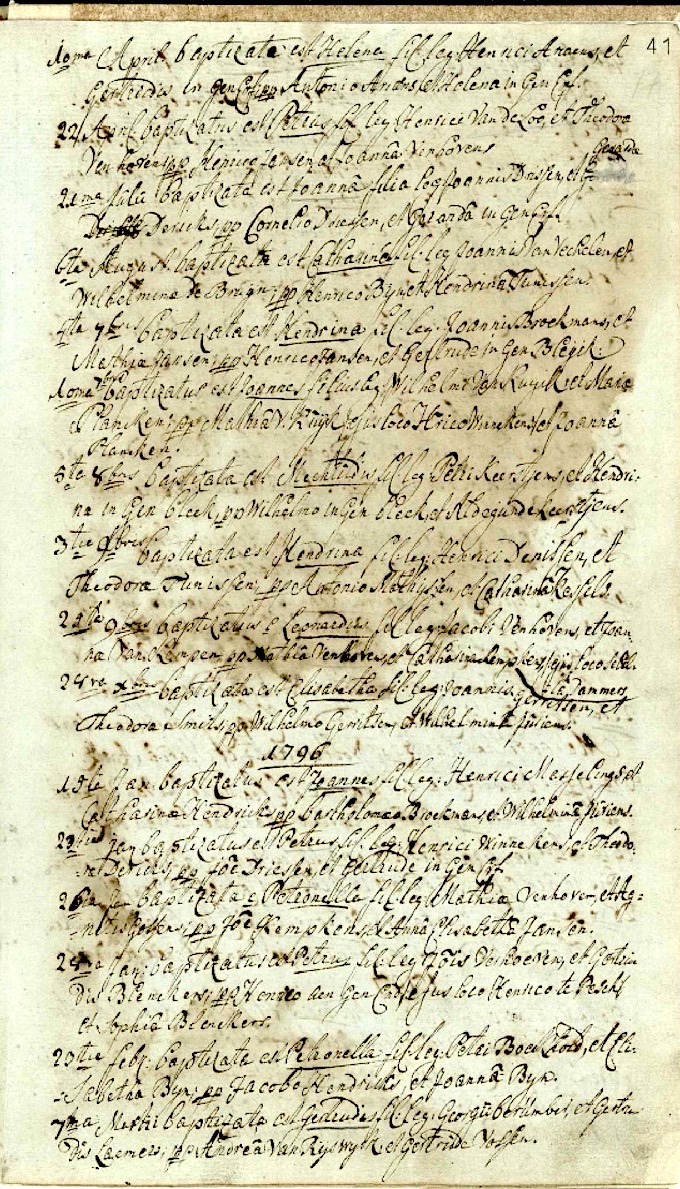 41
10ma April baptizata est Helena fil. leg. Henrici Araens, et
Gertrudis in gen Erf, pp Antonio Araens et Helena in Gen Erf.
22 April baptizatus est Petrus fil. leg. Henrici Van de Loo, et Theodora
Venhovens, pp Henrico Jansen, et Joannâ Venhovens
21ma Julii baptizata est Joannâ filia leg. Joannis Drissen, et Gerarda
Dericks, pp Cornelio Driessen, et Gerarda in Gen Erf.
6te August. baptizata est Catharina fil. leg. Joannis Van Eckelen, et
Wilhelmina de Bruyn, pp Henrico Byn et Hendrina Tunissen.
4ta 7bris baptizata est Hendrina fil. leg. Joannis Broekmans, et
Mathia Jansen, pp Henrico Jansen, et Gertrude in Gen Bleijck.
10ma 7bris baptizatus est Joannes filius leg. Wilhelmi Van Kuyck et Maria
Plancken, pp Mathiâ V. Kuyk ejus loco Hrico Winnekens, et Joannâ
Plancken.
5ta 8bris baptizata est Mechtildis fil. leg. Petri Keerstjens, et Hendri-
na in Gen bleek, pp Wilhelmo in Gen bleek, et Aldegunde Keerstjens.
3tia 9bris baptizata est Hendrina fil. leg. Henrici Denissen, et
Theodora Tunissen, pp Antonio Mathyssen, et Catharinâ Kessels.
24ta 9bris baptizatus e Leonardus fil. leg. Jacobi Venhovens, et Joan-
na Van Kempen, pp Mathia Venhovens, et Catharina Kempkens, ejus loco Sibil-
la Dammers
24ta xbris baptizata est Elisabetha fil. leg. Joannis Gerritsen, et
Theodora Smits, pp Wilhelmo Gerritsen, et Wilhelmina Juriens.
1796
19te Jan. baptizatus est Joannes fil. leg. Henrici Messelings et
Catharina Hendricks, pp Bartholomaeo Broekmans, et Wilhelminâ Juriens.
23tia Jan. baptizatus est Petrus fil. leg. Henrici Winnekens, et Theodo-
ra Dericks, pp Joe Driessen, et Gertrude in Gen Erf.
26ta Jan baptizata e Petronella fil. leg. Mathiae Venhoven, et Ag-
netis Peters, pp Joe Kempkens, et Annâ Elisabethâ Jansen.
Jan. baptizatus est Petrus fil. leg. Jois Verhoevens, et Gertru-
dis Blenckers, pp Henrico aen Gen Erf ejus loco Henrico te Pesch
et Sophiâ Blenckers.
20tia febr. baptizata est Petronella fil. leg. Petri Boeckhold, et Eli-
sabetha Byn, pp Jacobo Hendriks, et Joannâ Byn.
7ma Martii baptizata est Gertrudes fil. leg. Georgii Berümber, et Gertru-
dis Laemers, pp Andreâ Van Ryswyck, et Gertrude Vossen.